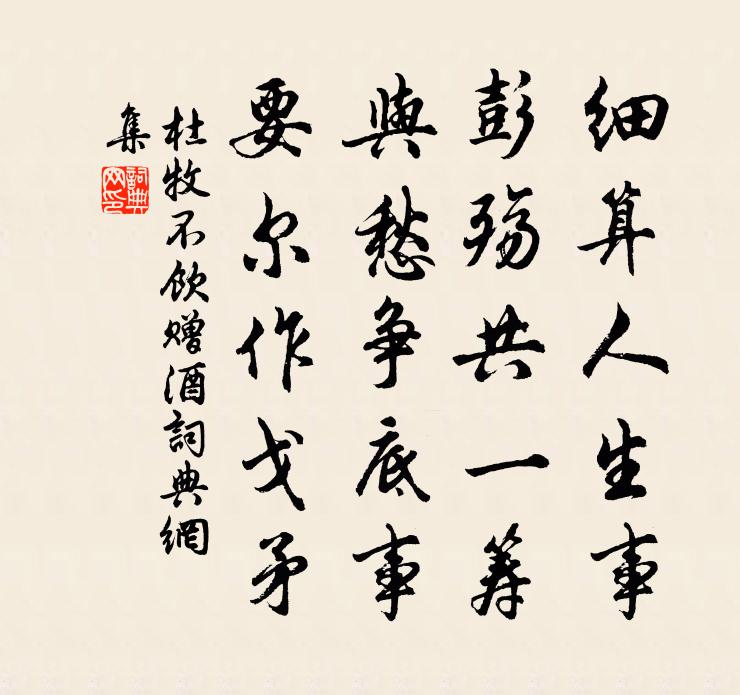 细算人生事
彭殇共一筹
與愁争底事
要尔作戈矛
杜牧不飲赠酒詞典網
集
詞典网印